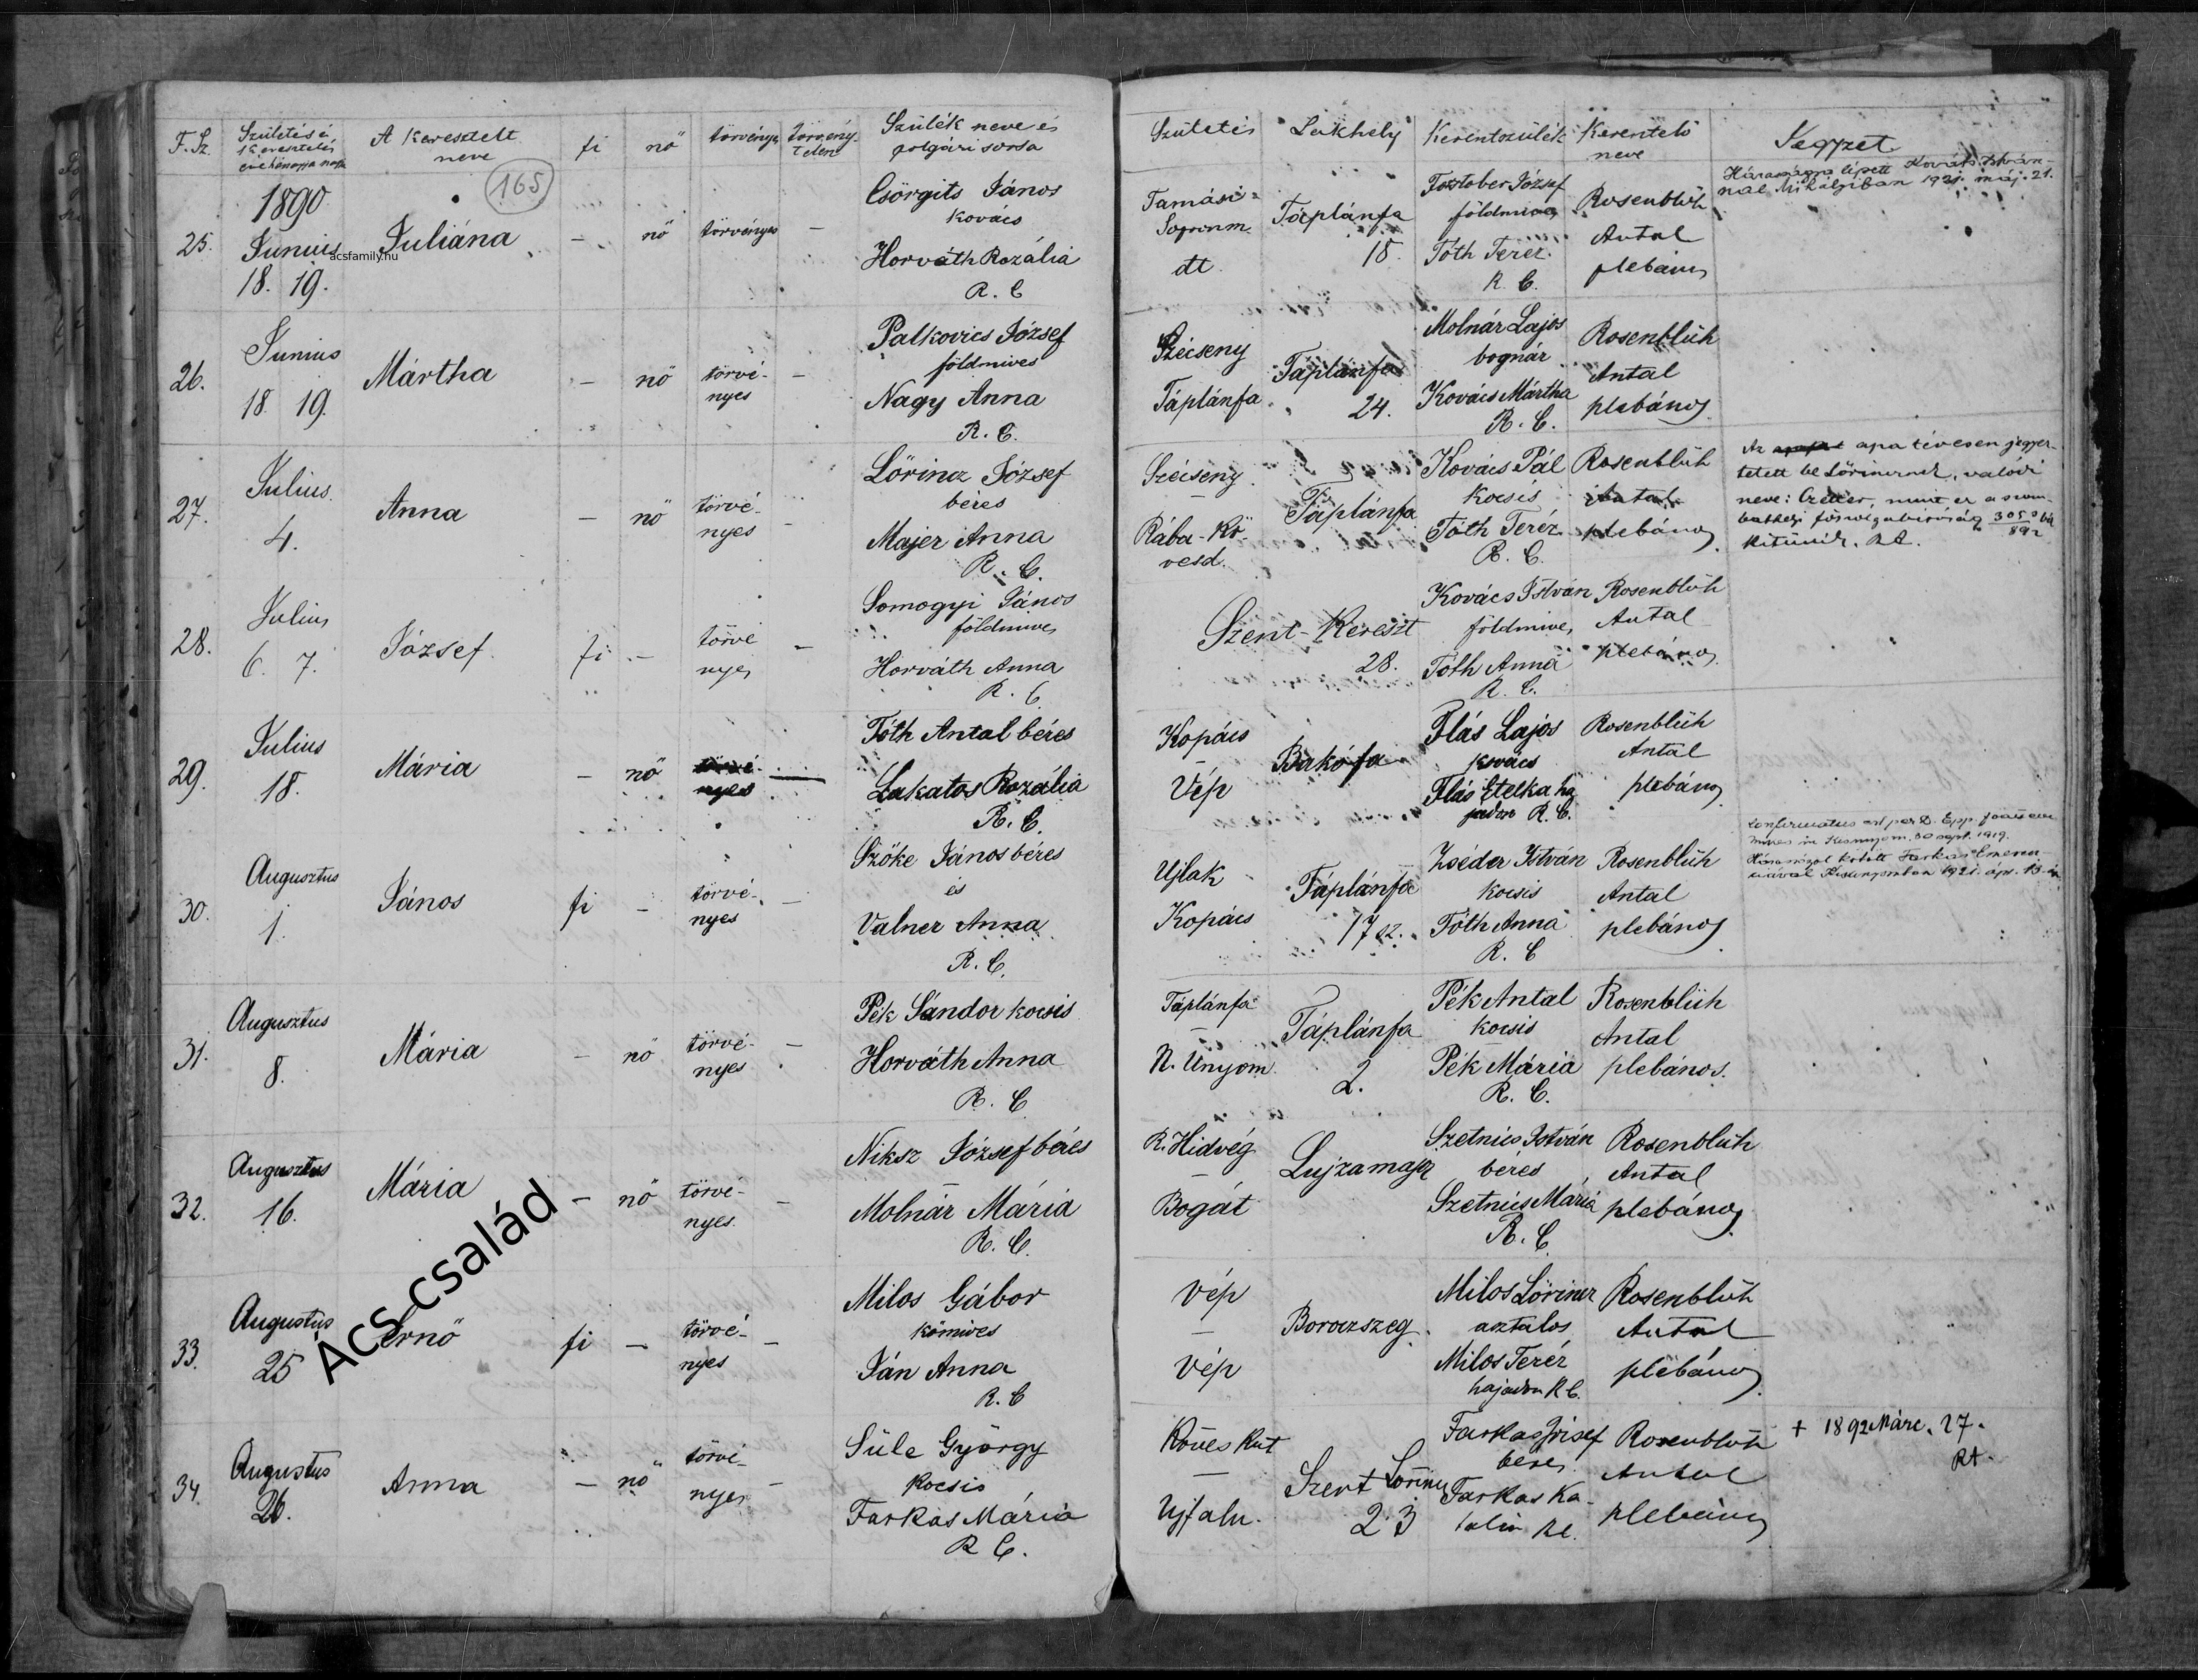 F. Sz.
Születési és keresztelési év hónapja napja
A keresztelt neve
fi
nö
törvényes
törvénytelen
Szülék neve és polgári sorsa
Születés
Lakhely
Keresztszülék
Keresztelő neve
Jegyzet
165
1890
25.
Junius
18. 19.
Juliána
-
nö
törvényes
-
Csörgits János
kovács
Horváth Rozália
R. C
Tamási
Sopron m.
Táplánfa
18.
József
földmives
Tóth Teréz
R. C.
Rosenblüh
Antal
plebános
Házasságra lépett Kováts István-
nal Mihályiban 1921. máj. 21.
acsfamily.hu
26.
Junius
18. 19.
Mártha
-
nö
törvé-
nyes
-
Palkovics József
földmives
Nagy Anna
R. C.
Szécseny
Táplánfa
Táplánfa
24.
Molnár Lajos
bognár
Kovács Mártha
R. C.
Rosenblüh
Antal
plebános
27.
Julius
4.
Anna
-
nö
törvé-
nyes
-
Lörincz József
béres
Majer Anna
R. C.
Szécseny
-
Rába-Kö-
vesd.
Táplánfa
Kovács Pál
kocsis
Tóth Teréz
R. C.
Rosenblüh
Antal
plebános
Az apa tévesen jegyez-
tetett be Lörincznek, valódi
neve: mint ez a szom-
bathelyi
kitünik. RA.
28.
Julius
6. 7.
József
fi
-
törvé
nyes
-
Somogyi János
földmives
Horváth Anna
R. C
Szent-Kereszt
28.
Kovács István
földmives
Tóth Anna
R. C.
Rosenblüh
Antal
plebános
29.
Julius
18.
Mária
-
nö
törvé-
nyes
Tóth Antal béres
Lakatos Rozália
R. C.
Kopács
-
Vép
Bakófa
Flás Lajos
kovács
Flás Etelka ha
jadon R. C.
Rosenblüh
Antal
plebános
30.
Augusztus
1.
János
fi
-
törvé-
nyes
-
Szöke János béres
és
Valner Anna
R. C.
Ujlak
Kopács
Táplánfa
17
Zséder István
kocsis
Tóth Anna
R. C
Rosenblüh
Antal
plebános
Confirmatus est per D. Epp. Joannem
Mikes in Kisunyom, 30 sept. 1919.
Házasságot kötött Farkas Emeren-
ciával Kisunyomban 1921. ápr. 13-án
31.
Augusztus
8.
Mária
-
nö
törvé-
nyes
-
Pék Sándor kocsis
Horváth Anna
R. C
Táplánfa
-
N. Unyom
Táplánfa
2.
Pék Antal
kocsis
Pék Mária
R. C.
Rosenblüh
Antal
plebános.
32.
Augusztus
16.
Mária
-
nö
törvé-
nyes.
-
Niksz József béres
Molnár Mária
R. C.
R. Hidvég
-
Bogát
Lujzamajor
Szetnics István
béres
Szetnics Mária
R. C
Rosenblüh
Antal
plebános
33.
Augustus
25
Ernö
fi
-
törvé-
nyes
-
Milos Gábor
kömives
Ján Anna
R. C
Vép
-
Vép
Borozszeg
Milos Lörincz
asztalos
Milos Teréz
hajadon R C.
Rosenblüh
Antal
plebános
34.
Augustus
26.
Anna
-
nö
törvé-
nyes
-
Süle György
kocsis
Farkas Mária
R C.
Köves Kut
-
Ujfalu.
Szent Lörincz
23
Farkas József
béres
Farkas Ka-
talin RC.
Rosenblüh
Antal
plebános
+ 1892 Márc. 27.
RA.
Acs család